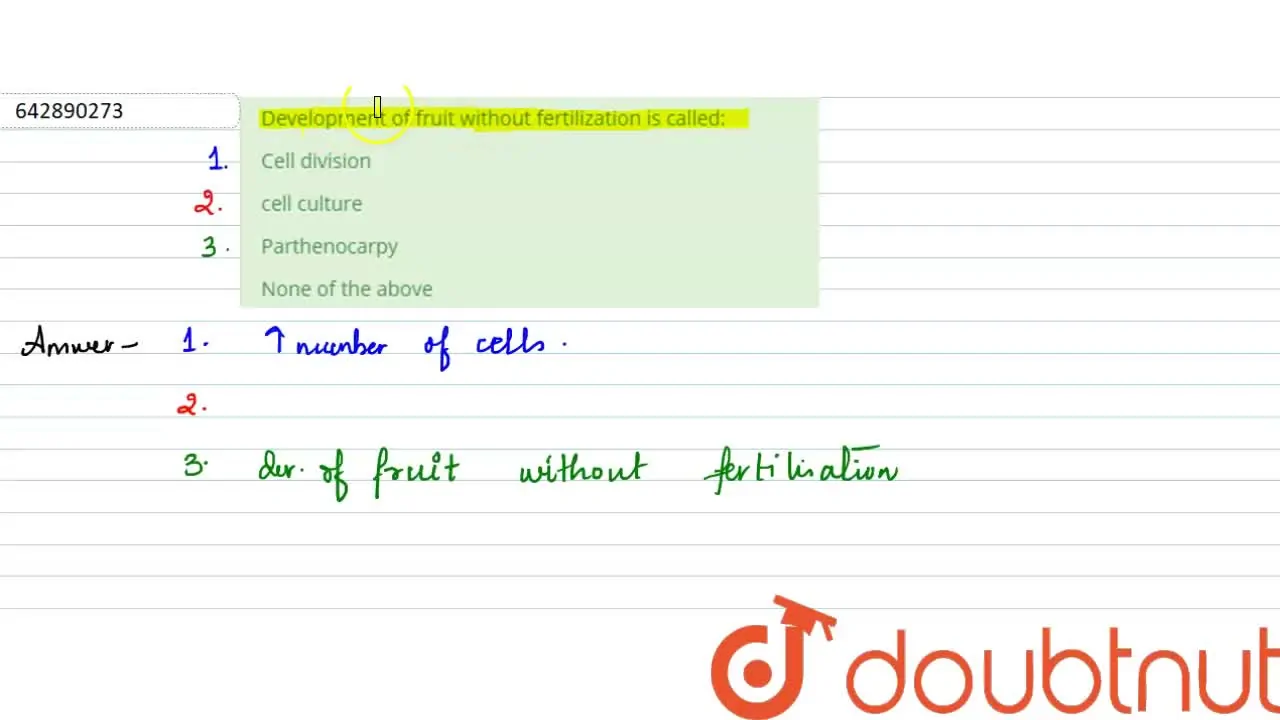 642890273
Development of fruit without fertilization is called:
1. Cell division
2. cell culture
3. Parthenocarpy
None of the above
Answer - 1. ↑ number of cells.
2.
3. der. of fruit without fertilisation
doubtnut